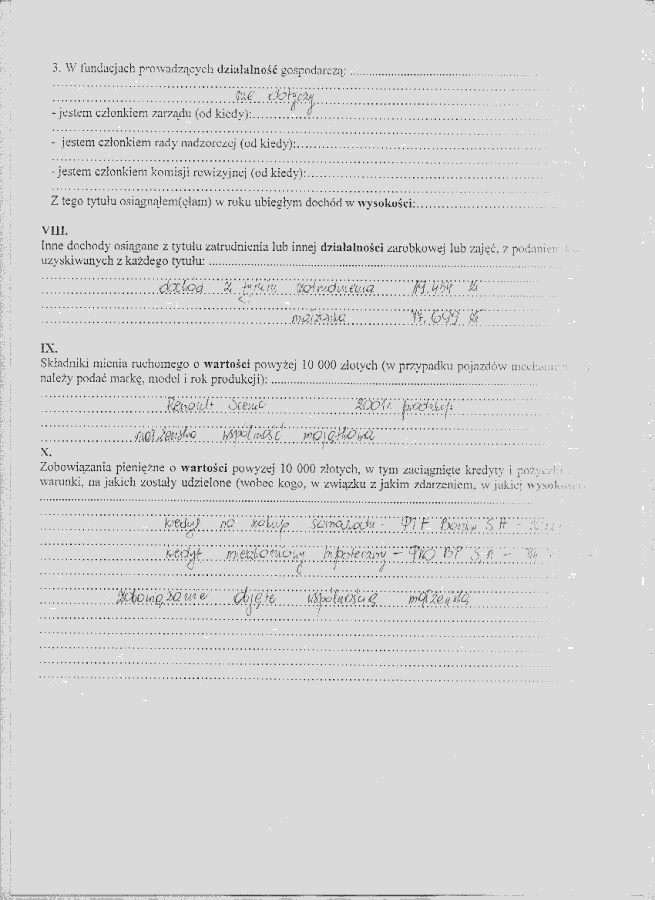 3. W fundacjach prowadzących działalność gospodarczą:
nie dotyczy
- jestem członkiem zarządu (od kiedy):
- jestem członkiem rady nadzorczej (od kiedy):
- jestem członkiem komisji rewizyjnej (od kiedy):
Z tego tytułu osiągnąłem(ęłam) w roku ubiegłym dochód w wysokości:
VIII.
Inne dochody osiągane z tytułu zatrudnienia lub innej działalności zarobkowej lub zajęć, z podaniem
uzyskiwanych z każdego tytułu:
dochód z tytułu zatrudnienia zł
małżonka zł
IX.
Składniki mienia ruchomego o wartości powyżej 10 000 złotych (w przypadku pojazdów
należy podać markę, model i rok produkcji):
Renault Scenic 2001r. produkcji
małżeńska wspólność majątkowa
X.
Zobowiązania pieniężne o wartości powyżej 10 000 złotych, w tym zaciągnięte kredyty i pożyczki
warunki, na jakich zostały udzielone (wobec kogo, w związku z jakim zdarzeniem, w jakiej
kredyt na zakup samochodu - Bank S.A -
kredyt mieszkaniowy hipoteczny - PKO BP S.A -
zobowiązanie objęte wspólnością małżeńską